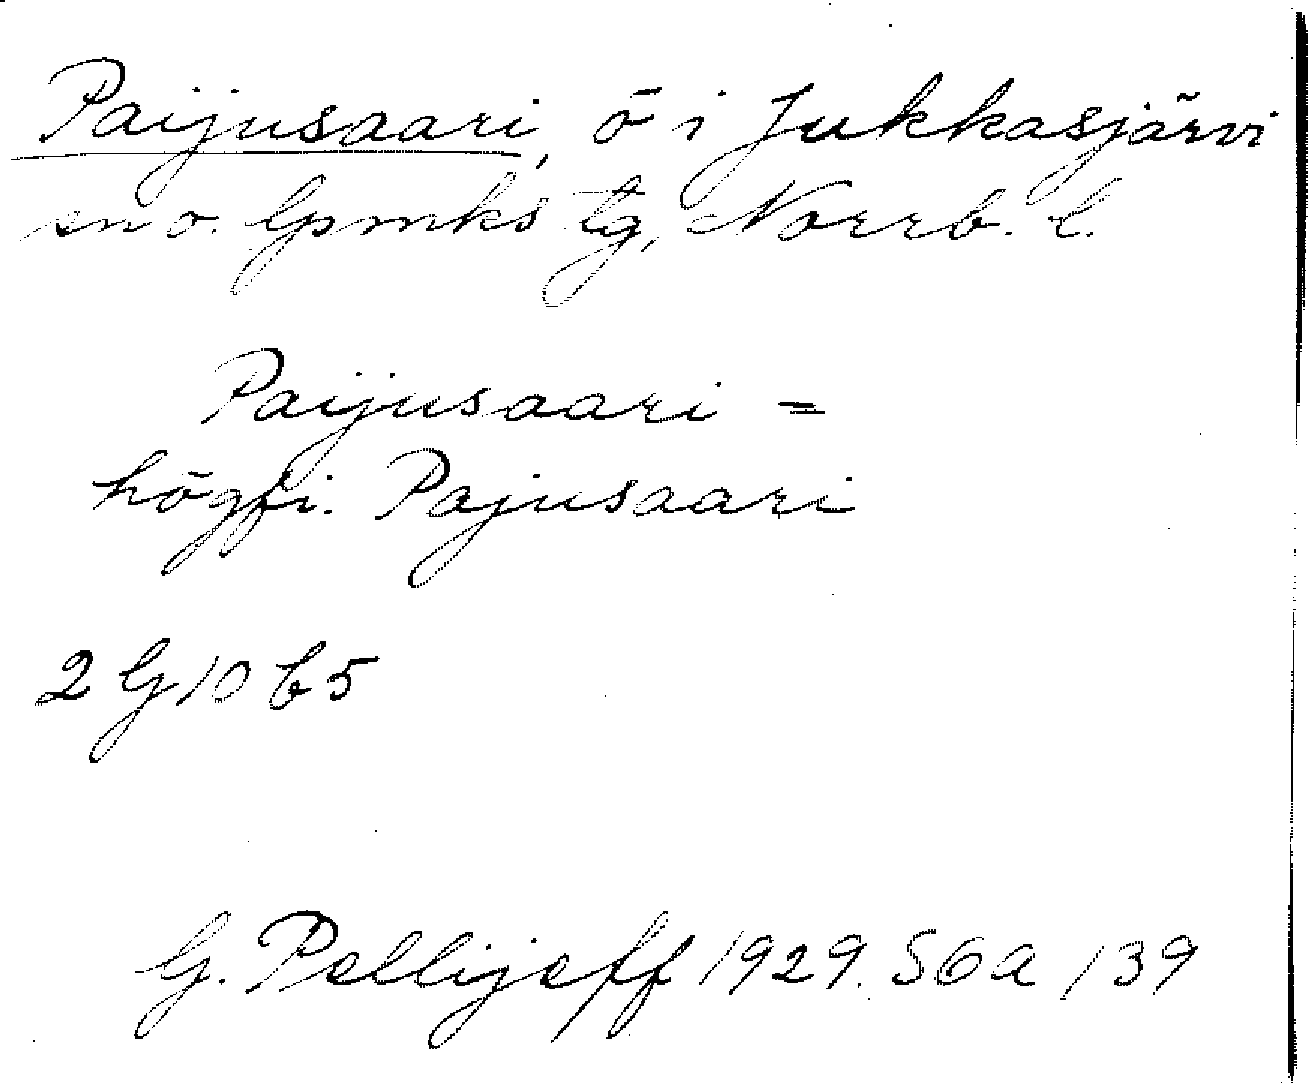 Paijusaari, ö i Jukkasjärvi
sn o. lpmks tg, Norrb. l.
Paijusaari =
högfi. Pajusaari
2 G 10 b 5
G. Pellijeff 1929. S G a 139